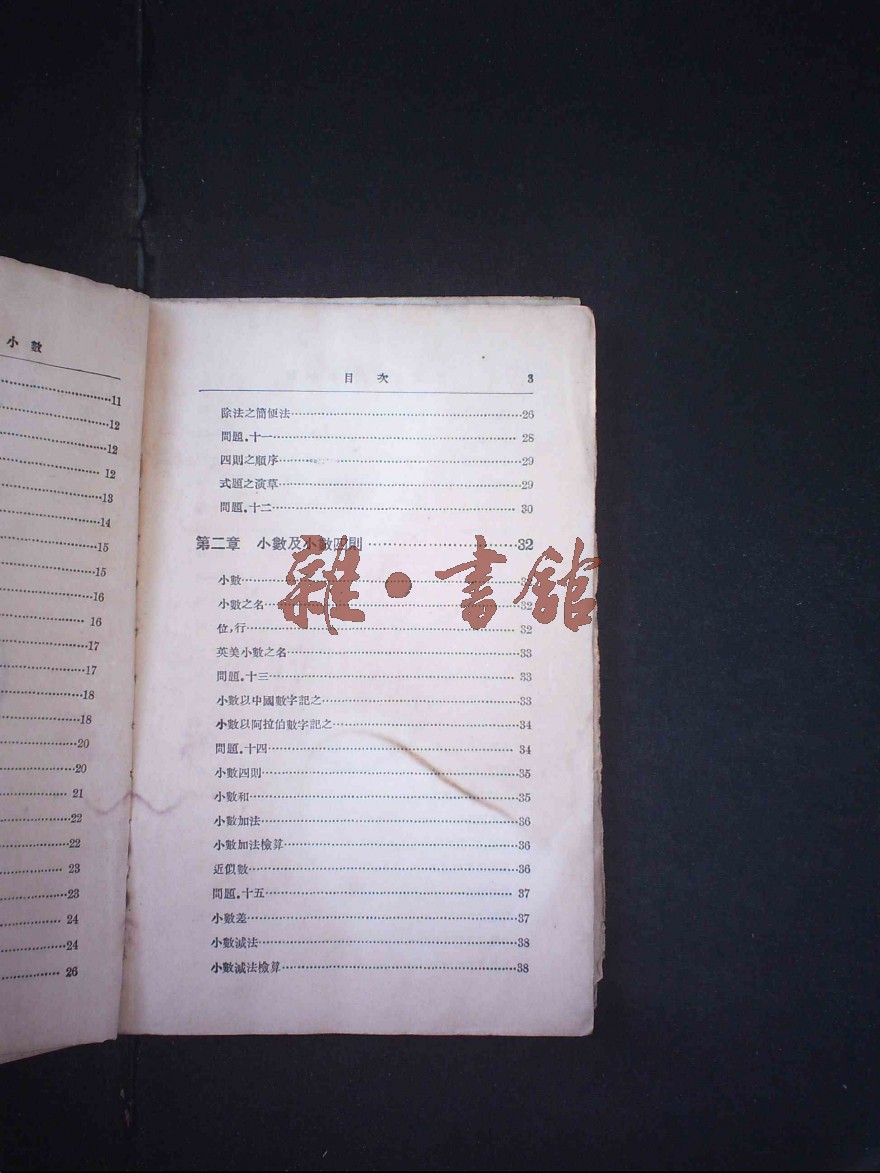 小 數
11
12
12
12
13
14
15
15
16
16
17
17
18
18
20
20
21
22
22
23
23
24
24
26
目 次 3
除法之簡便法 26
問題.十一 28
四則之順序 29
式題之演草 29
問題.十二 30
第二章 小數及小數四則 32
小數 32
小數之名 32
位,行 32
英美小數之名 33
問題.十三 33
小數以中國數字記之 33
小數以阿拉伯數字記之 34
問題.十四 34
小數四則 35
小數和 35
小數加法 36
小數加法檢算 36
近似數 36
問題.十五 37
小數差 37
小數減法 38
小數減法檢算 38
雜·書館